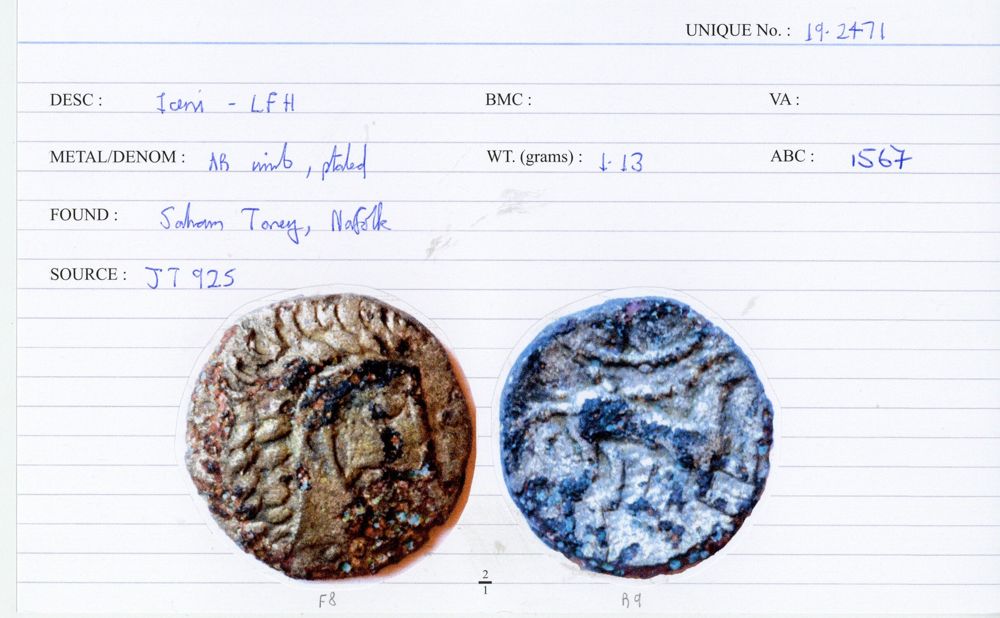 UNIQUE No. : 19.2471
DESC : Iceni - LFH BMC : VA :
METAL/DENOM : AR unit, plated WT. (grams) : 1.13 ABC : 1567
FOUND : Saham Toney, Norfolk
SOURCE : JT 925
2
1
F8 R9